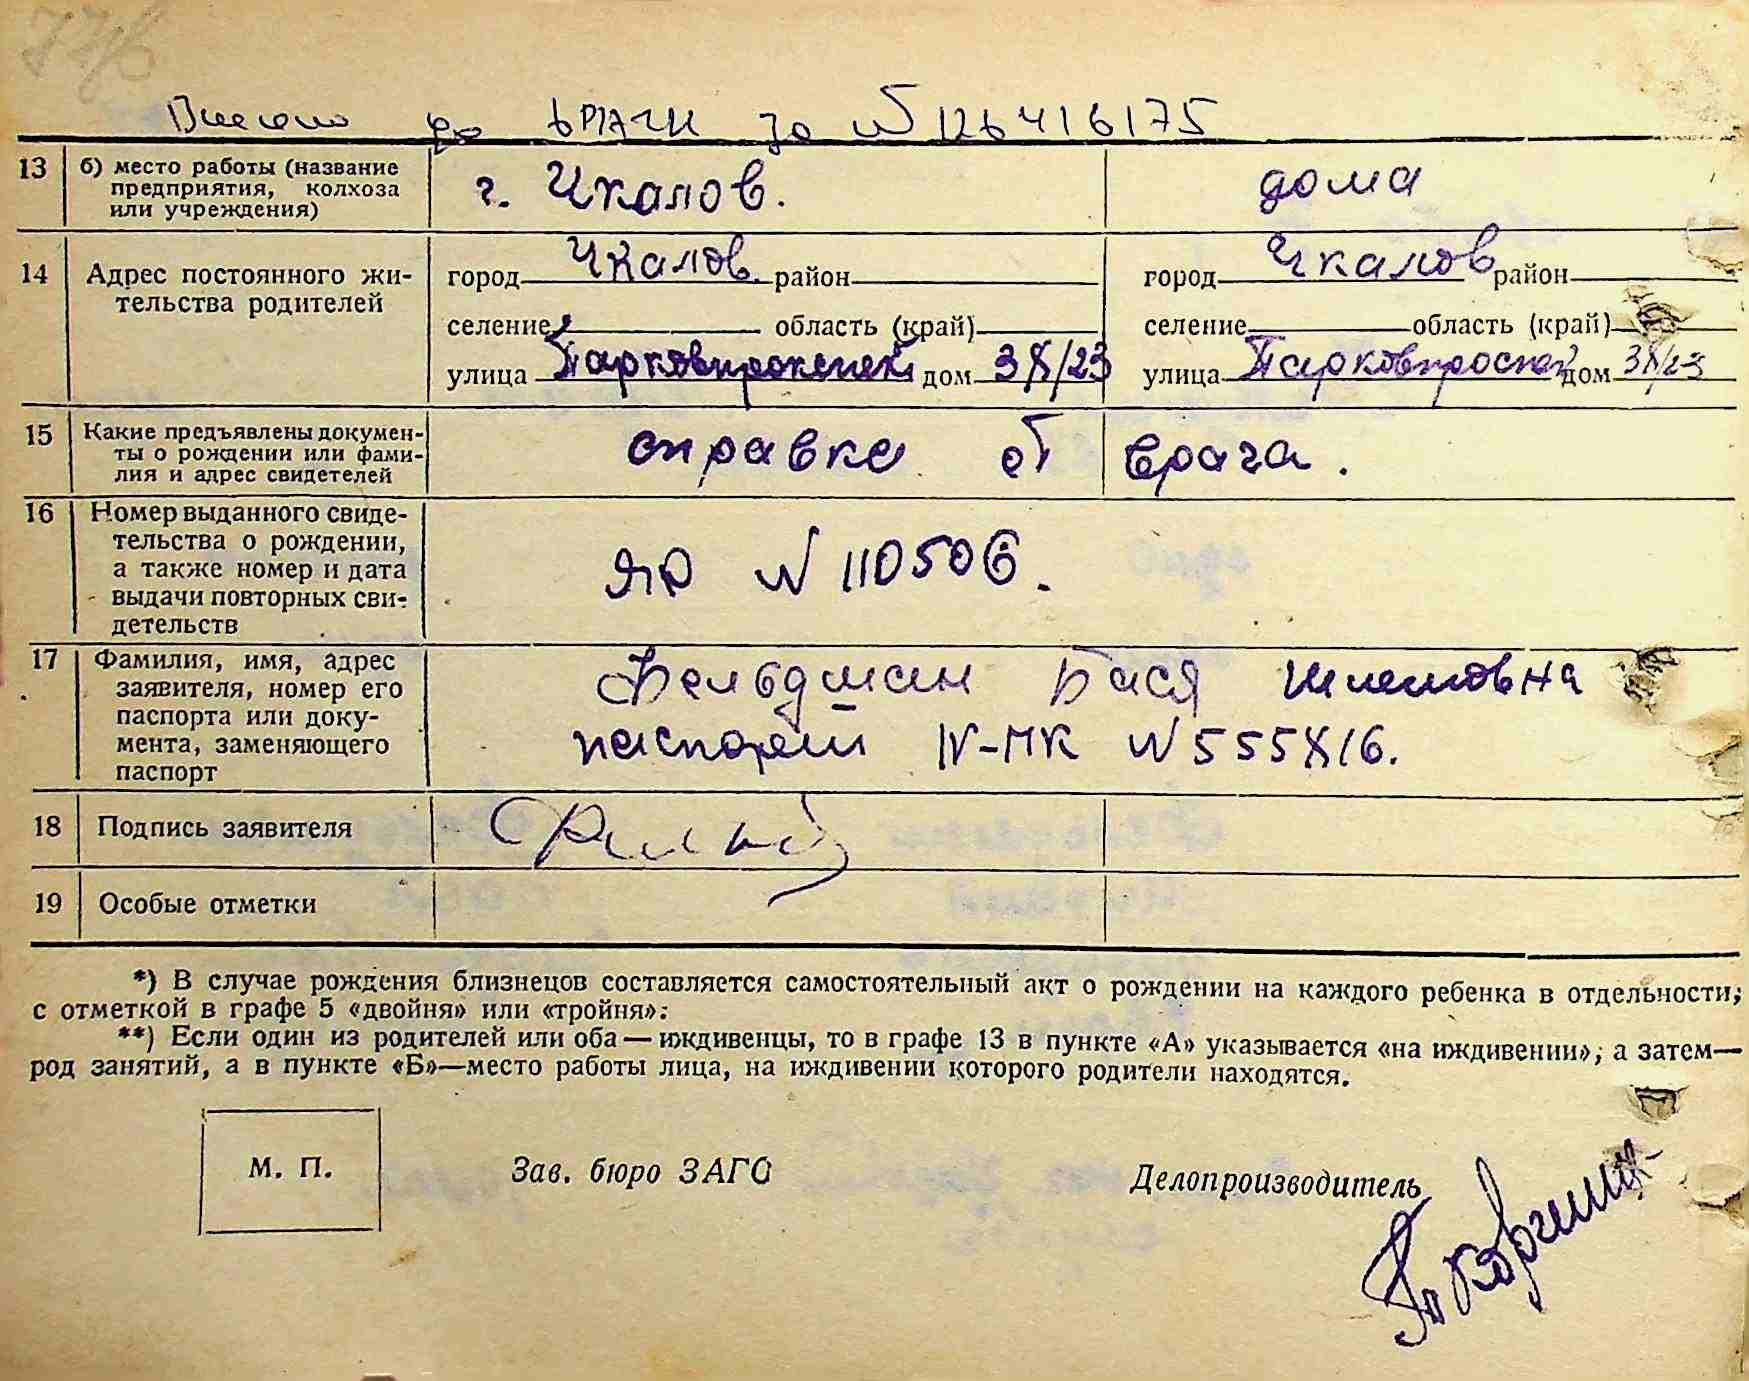 Внесено до ДРАЦС за № 126416175
13 б) место работы (название предприятия, колхоза или учреждения) г. Чкалов. дома
14 Адрес постоянного жительства родителей город Чкалов район город Чкалов район
селение область (край) селение область (край)
улица дом 38/23 улица дом 38/23
15 Какие предъявлены документы о рождении или фамилия и адрес свидетелей справка от врача.
16 Номер выданного свидетельства о рождении, а также номер и дата выдачи повторных свидетельств ЯР № 110506.
17 Фамилия, имя, адрес заявителя, номер его паспорта или документа, заменяющего паспорт Фельдман Бася Шлемовна
паспорт IV-МК № 555816.
18 Подпись заявителя
19 Особые отметки
*) В случае рождения близнецов составляется самостоятельный акт о рождении на каждого ребенка в отдельности;
с отметкой в графе 5 «двойня» или «тройня».
**) Если один из родителей или оба — иждивенцы, то в графе 13 в пункте «А» указывается «на иждивении», а затем—
род занятий, а в пункте «Б»—место работы лица, на иждивении которого родители находятся.
М. П. Зав. бюро ЗАГС Делопроизводитель